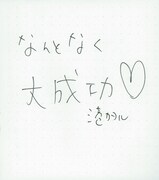 なんとなく
大成功♡
港カヲル